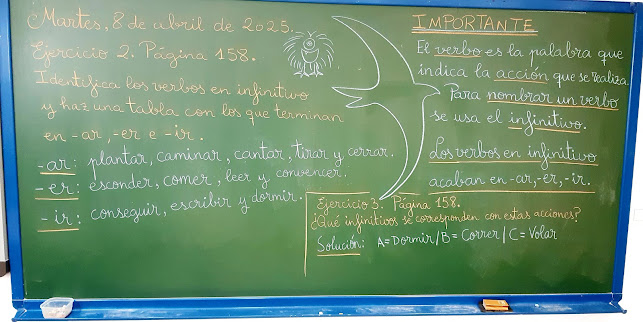 Martes, 8 de abril de 2025.
Ejercicio 2. Página 158.
Identifica los verbos en infinitivo
y haz una tabla con los que terminan
en -ar, -er e -ir.
-ar: plantar, caminar, cantar, tirar y cerrar.
-er: esconder, comer, leer y convencer.
-ir: conseguir, escribir y dormir.
IMPORTANTE
El verbo es la palabra que
indica la acción que se realiza.
Para nombrar un verbo
se usa el infinitivo.
Los verbos en infinitivo
acaban en -ar, -er, -ir.
Ejercicio 3. Página 158.
¿Qué infinitivos se corresponden con estas acciones?
Solución: A=Dormir/B=Correr/C=Volar